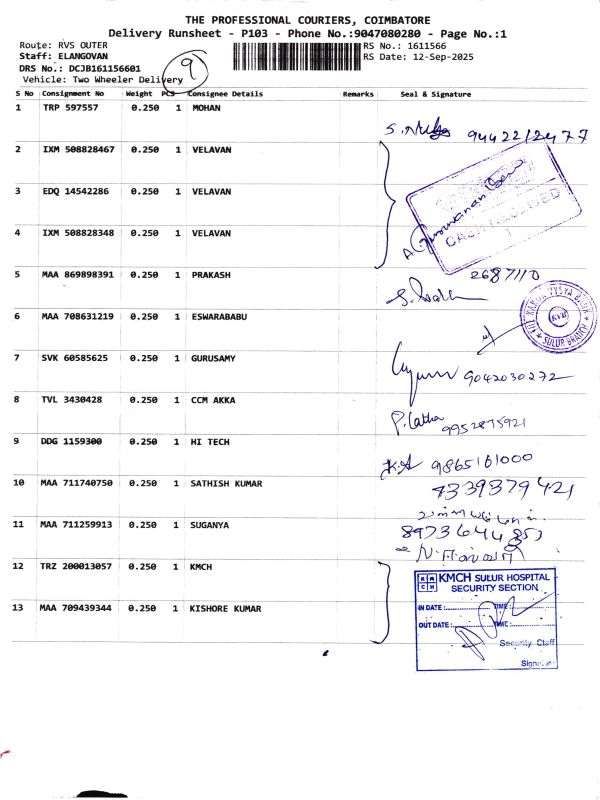 THE PROFESSIONAL COURIERS, COIMBATORE
Delivery Runsheet - P103 - Phone No.:9047080280 - Page No.:1
Route: RVS OUTER
RS No.: 1611566
Staff: ELANGOVAN
RS Date: 12-Sep-2025
DRS No.: DCJB161156601
Vehicle: Two Wheeler Delivery
9
S No Consignment No Weight PCS Consignee Details Remarks Seal & Signature
1 TRP 597557 0.250 1 MOHAN
9442212477
2 IXM 508828467 0.250 1 VELAVAN
3 EDQ 14542286 0.250 1 VELAVAN
4 IXM 508828348 0.250 1 VELAVAN
5 MAA 869898391 0.250 1 PRAKASH
2687110
6 MAA 708631219 0.250 1 ESWARABABU
THE KARUR VYSYA BANK
KVB
SULUR BRANCH
7 SVK 60585625 0.250 1 GURUSAMY
9042030272
8 TVL 3430428 0.250 1 CCM AKKA
P. Latha 9952875921
9 DDG 1159300 0.250 1 HI TECH
9865161000
10 MAA 711740750 0.250 1 SATHISH KUMAR
9339379421
11 MAA 711259913 0.250 1 SUGANYA
12 TRZ 200013057 0.250 1 KMCH
KMCH SULUR HOSPITAL
SECURITY SECTION
13 MAA 709439344 0.250 1 KISHORE KUMAR
IN DATE: TIME:
OUT DATE: TIME:
Security Staff
Signature